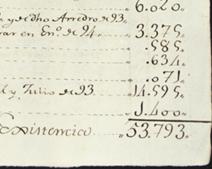 6.020.
y dho Arredro de 93.
ar en En.º de 94. 3.375.
.585.
.634.
.071.
l y Julio de 93. 14.595.
1.400.
Existencia 53.793.